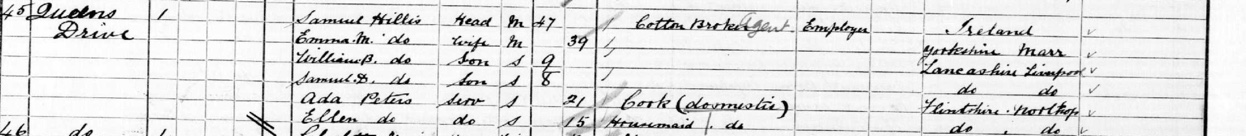 45 Queens 1 Samuel Hillis Head M 47 Cotton Broker Agent Employer Ireland
Drive Emma M. do Wife M 39 Yorkshire Marr
William B. do Son S 9 Lancashire Liverpool
Samuel D. do Son S 8 do do
Ada Peters Serv S 21 Cook (domestic) Flintshire Northop
Ellen do do S 15 Housemaid do do do
46 do 1